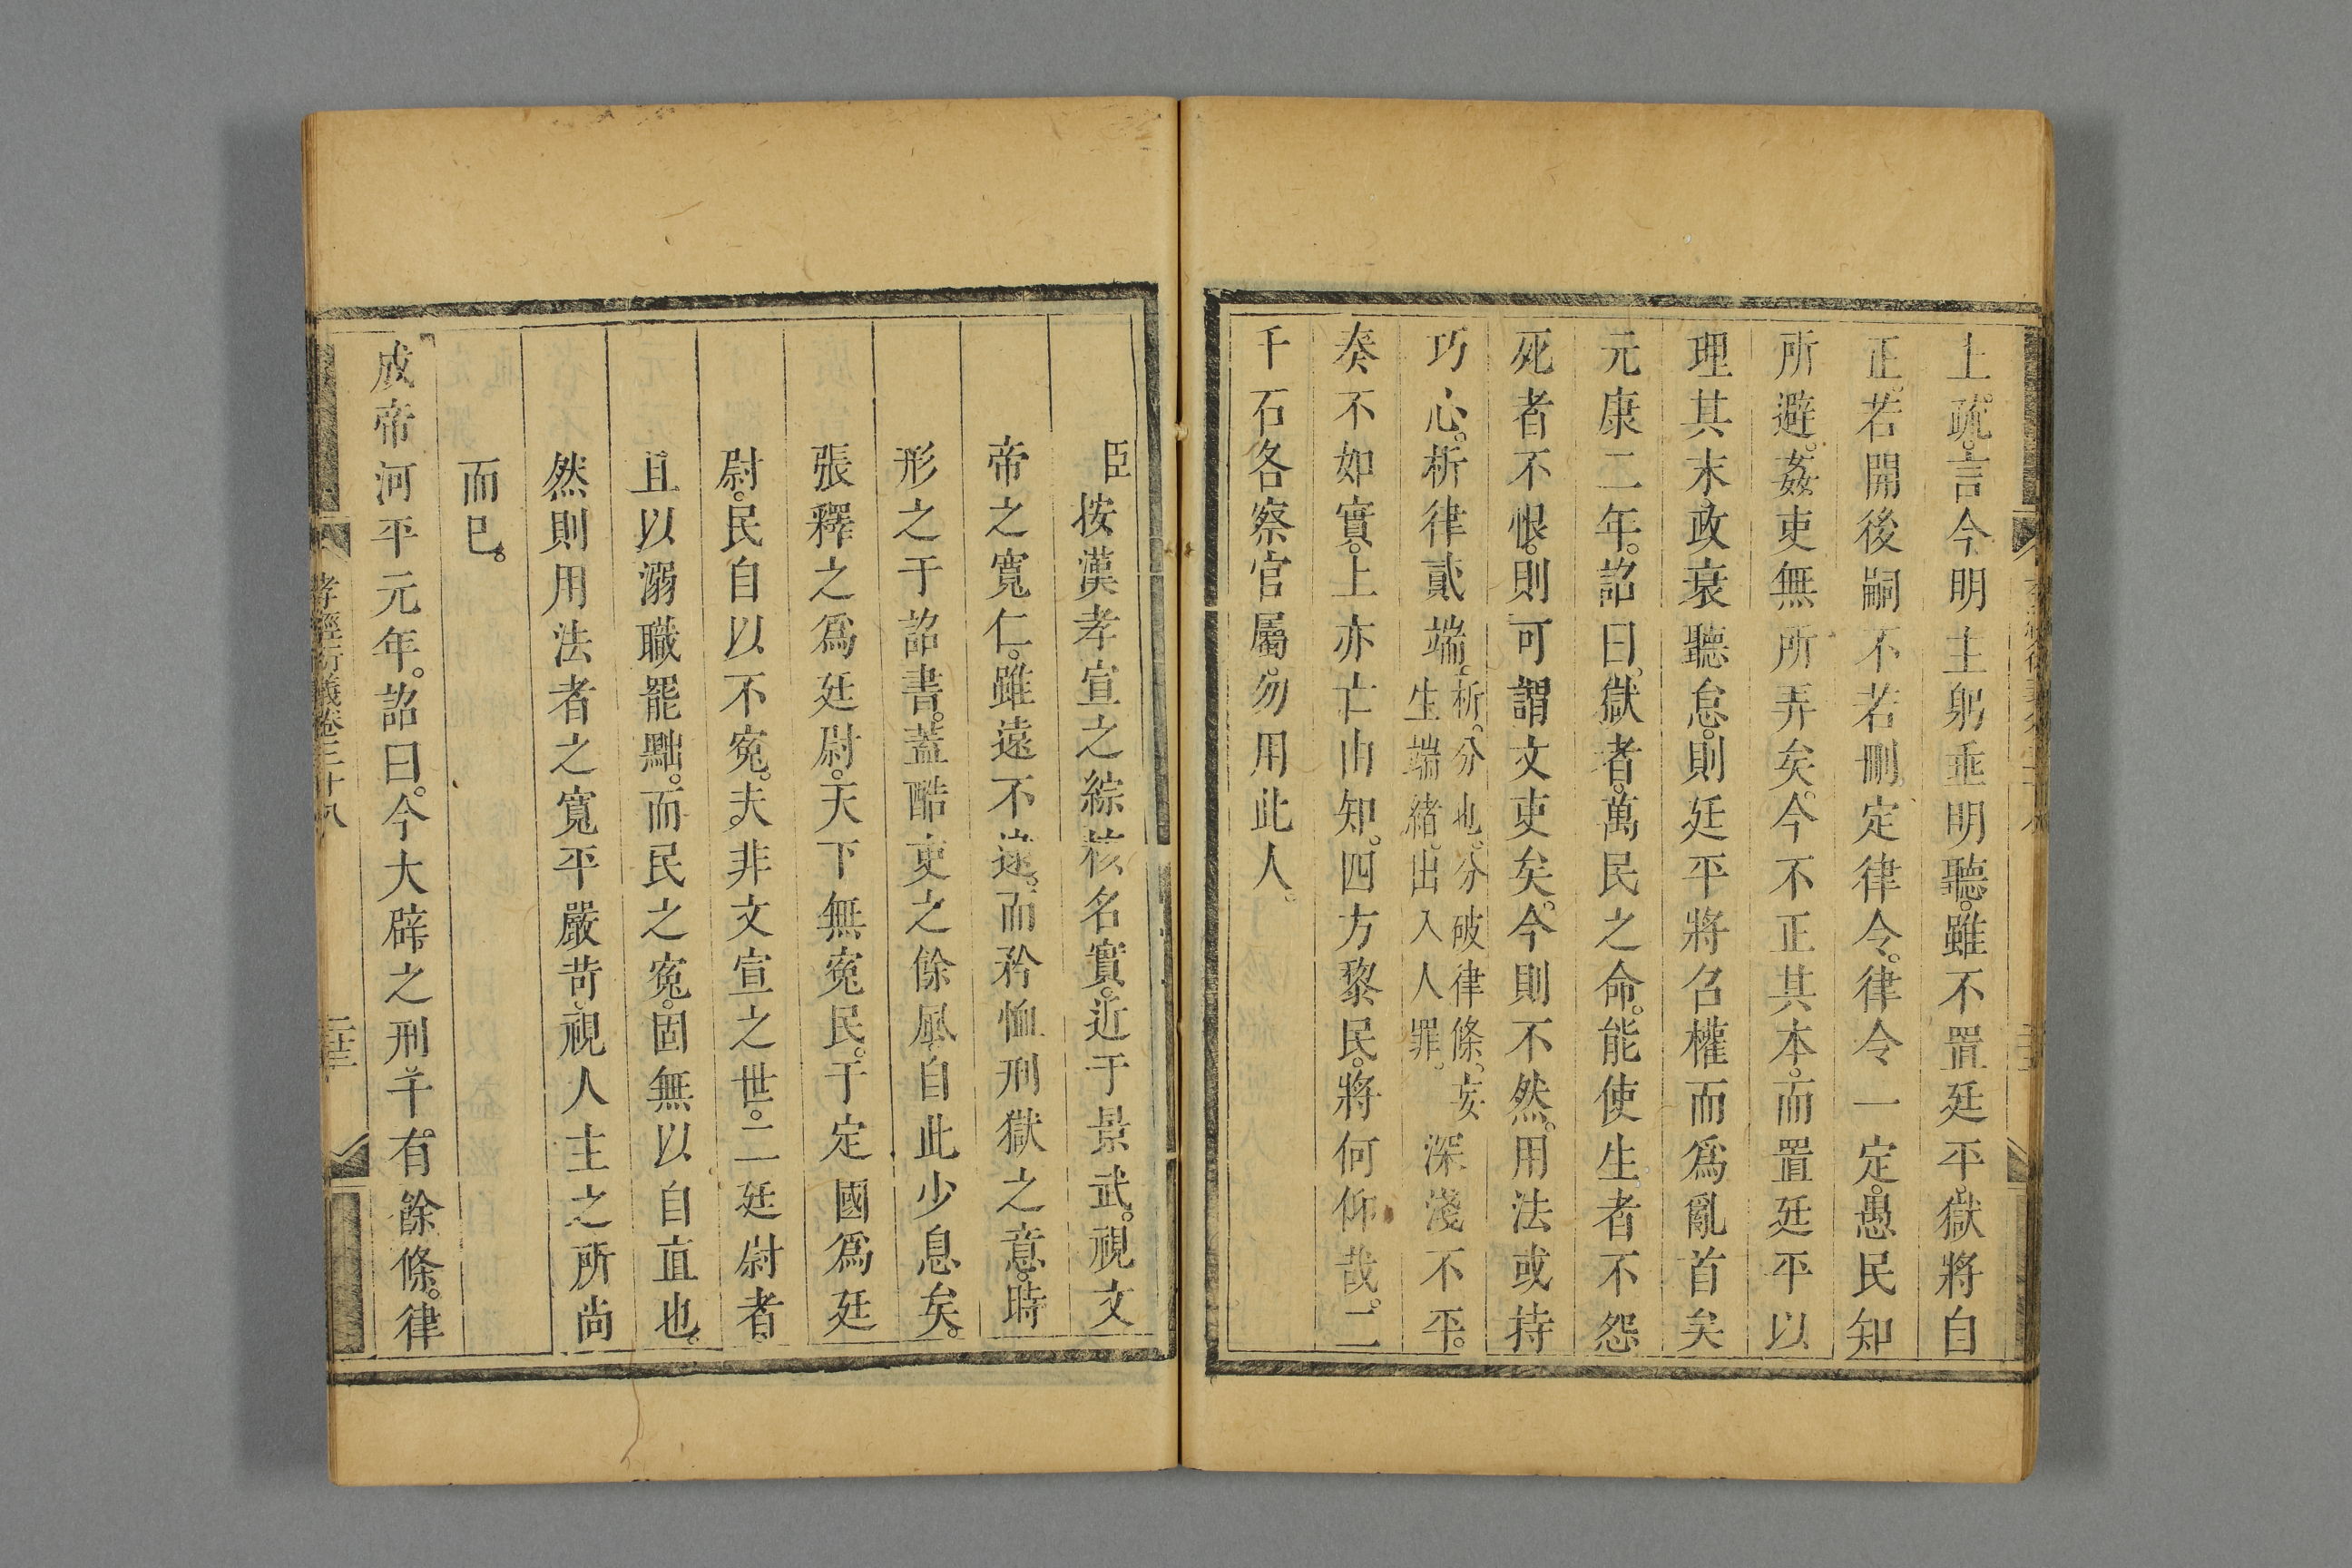 上疏。言今明主躬垂明聽。雖不置廷平。獄將自
正。若開後嗣不若刪定律令。律令一定。愚民知
所避。姦吏無所弄矣。今不正其本。而置廷平以
理其末政衰聽怠。則廷平將召權而爲亂首矣
元康二年。詔曰。獄者。萬民之命。能使生者不怨
死者不恨。則可謂文吏矣。今則不然。用法或持
巧心。析律貳端。析。分也。分破律條。妄生端緒。出入人罪。深淺不平。
奏不如實。上亦亡由知。四方黎民。將何仰哉。二
千石各察官屬。勿用此人。
臣按漢孝宣之綜核名實。近于景武。視文
帝之寬仁。雖遠不逮。而矜恤刑獄之意。時
形之于詔書。蓋酷吏之餘風。自此少息矣。
張釋之爲廷尉。天下無寃民。于定國爲廷
尉。民自以不寃。夫非文宣之世。二廷尉者。
且以溺職罷黜。而民之寃。固無以自直也。
然則用法者之寬平嚴苛。視人主之所尚
而已。
成帝河平元年。詔曰。今大辟之刑千。有餘條。律
孝經衍義卷三十八